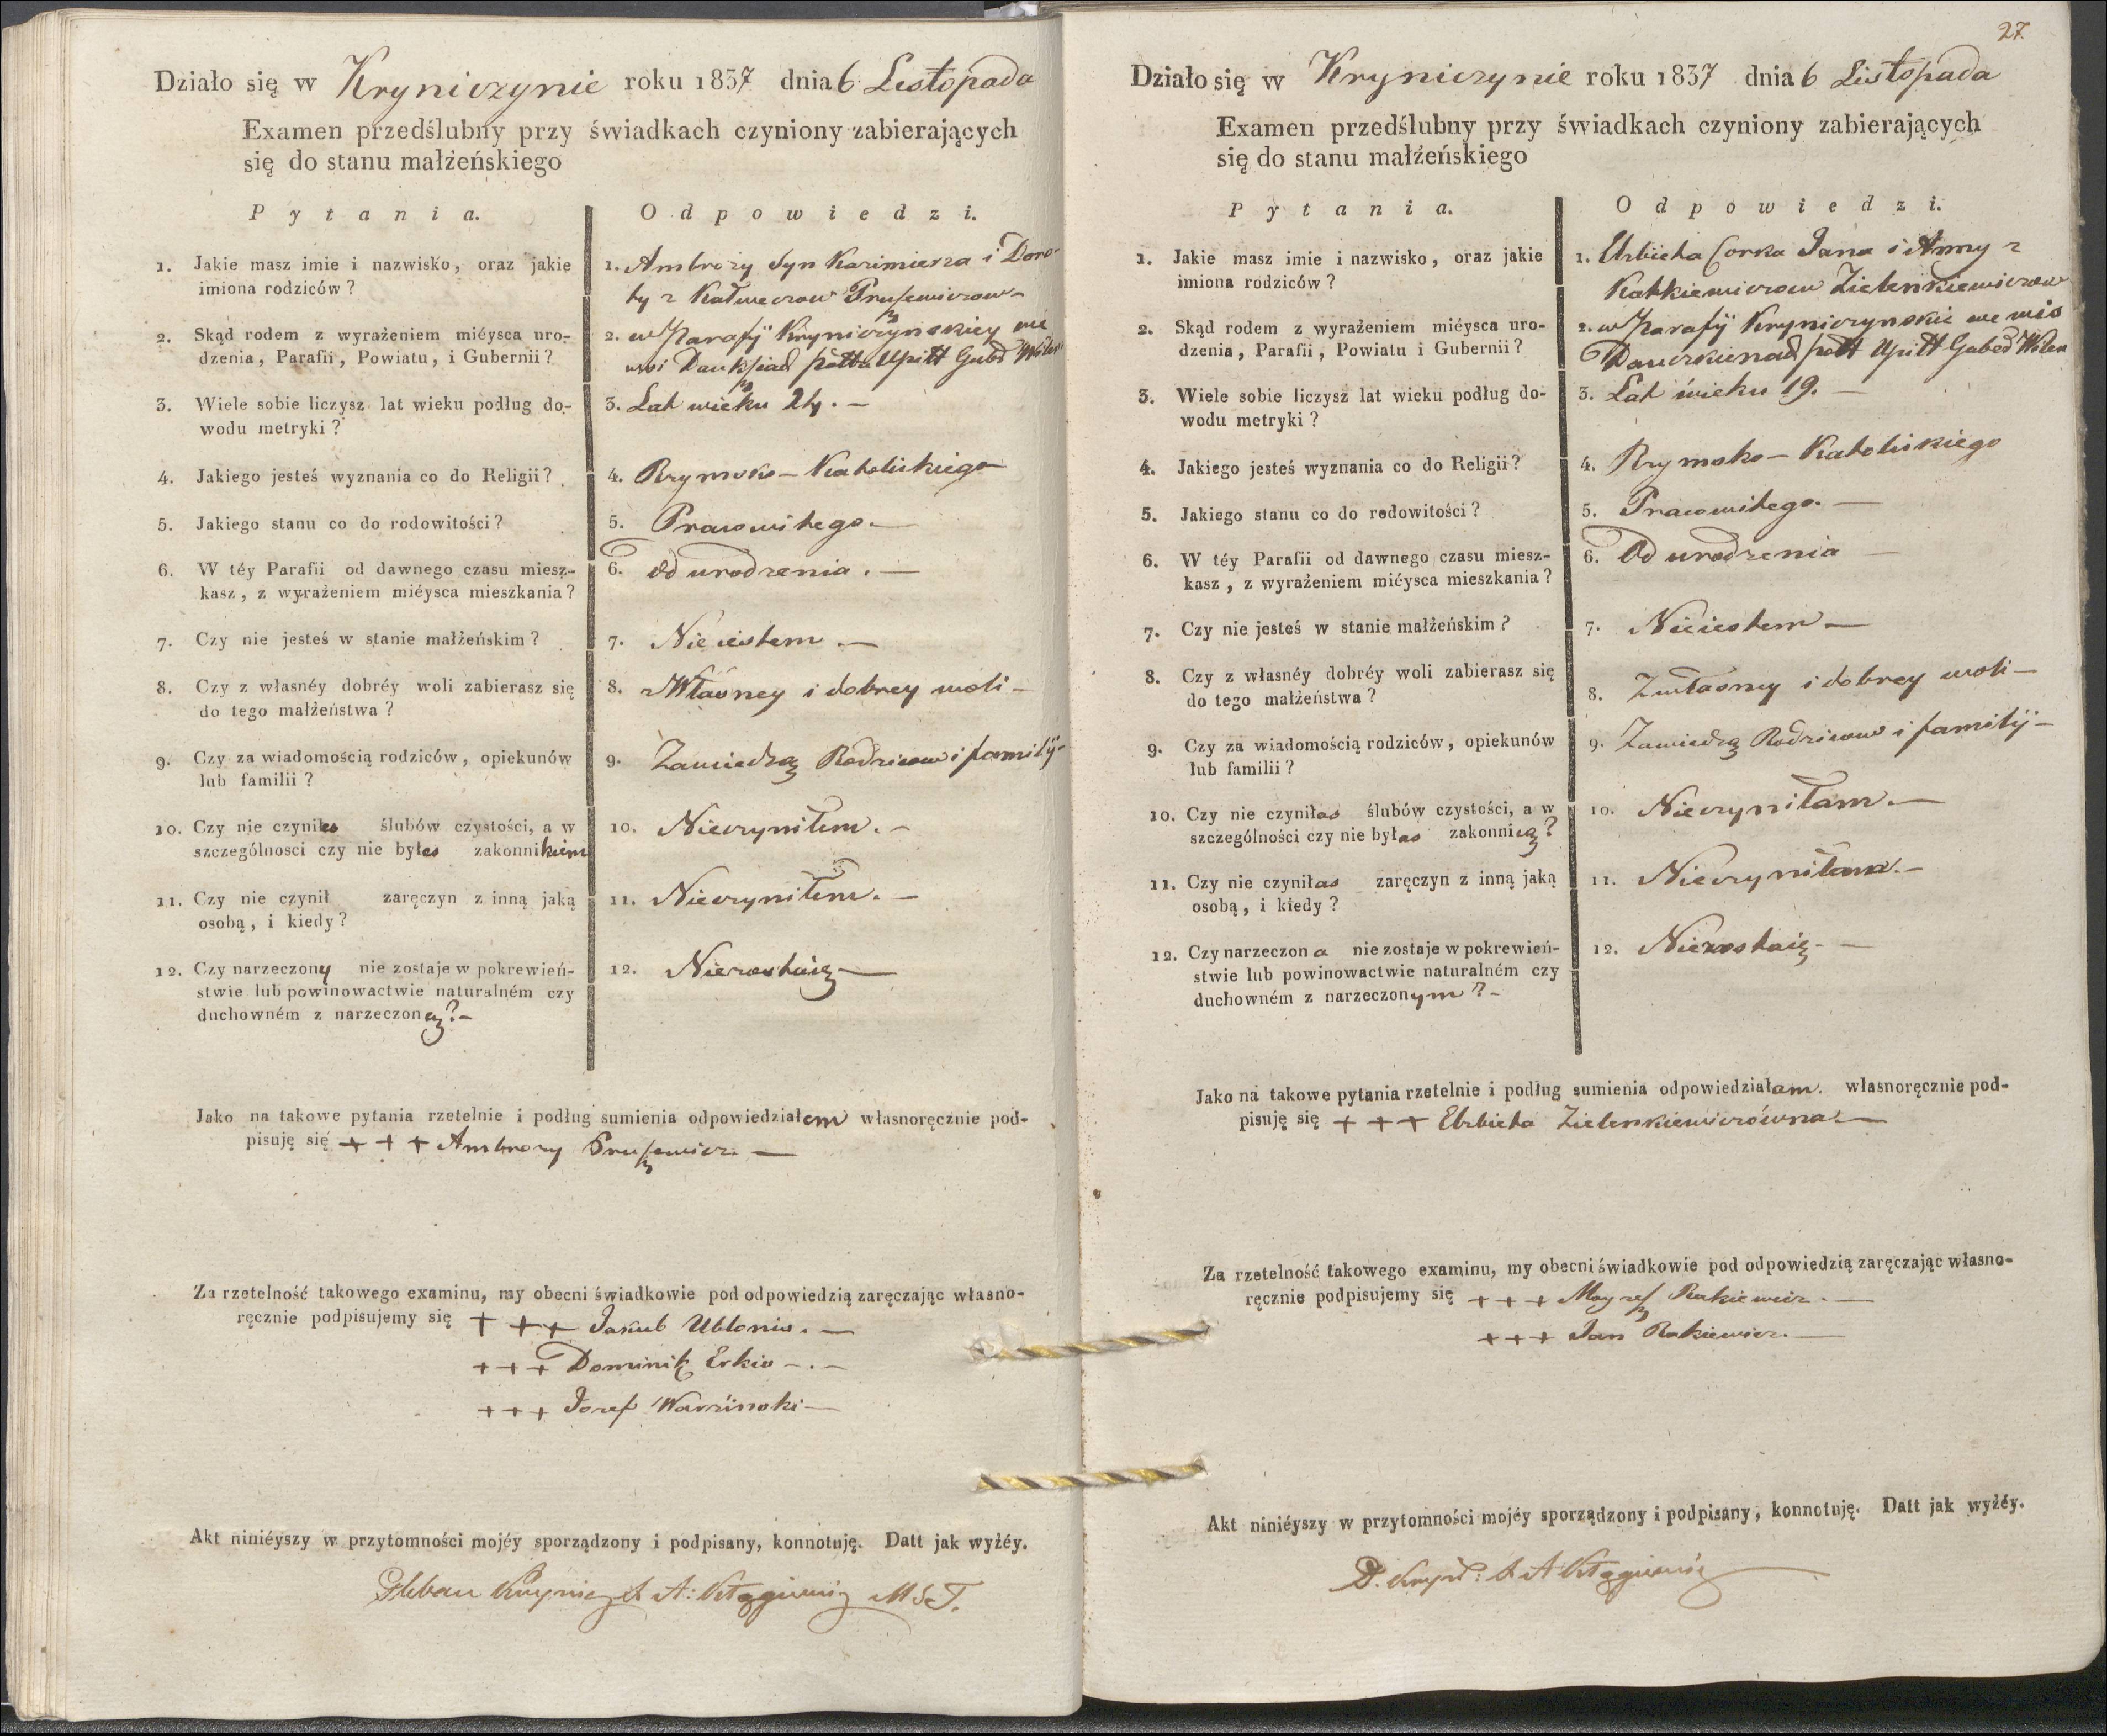 Działo się w Kryniczynie roku 1837 dnia 6 Listopada
Examen przedślubny przy świadkach czyniony zabierających
się do stanu małżeńskiego
Pytania. Odpowiedzi.
1. Jakie masz imie i nazwisko, oraz jakie
imiona rodziców?
1. Ambrozy Syn Kazimierza i Doro-
ty z
2. Skąd rodem z wyrażeniem miéysca uro-
dzenia, Parafii, Powiatu, i Gubernii?
2. w Parafij Kryniczynskiey we
wsi pottu Upitt Gubd Wilen
3. Wiele sobie liczysz lat wieku podług do-
wodu metryki?
3. Lat wieku 24. —
4. Jakiego jesteś wyznania co do Religii?
4. Rzymsko – Katolickiego
5. Jakiego stanu co do rodowitości?
5. Pracowitego. —
6. W téy Parafii od dawnego czasu miesz-
kasz, z wyrażeniem miéysca mieszkania?
6. Od urodzenia. —
7. Czy nie jesteś w stanie małżeńskim?
7. Nie iestem. —
8. Czy z własnéy dobréy woli zabierasz się
do tego małżeństwa?
8. z Własney i dobrey woli –
9. Czy za wiadomością rodziców, opiekunów
lub familii?
9. Zawiedzą Rodzicow i familij –
10. Czy nie czyniłes ślubów czystości, a w
szczególnosci czy nie byłes zakonnikiem
10. Nieczyniłem. –
11. Czy nie czynił zaręczyn z inną jaką
osobą, i kiedy?
11. Nieczyniłem. –
12. Czy narzeczony nie zostaje w pokrewień-
stwie lub powinowactwie naturalném czy
duchowném z narzeczoną? –
12. Niezostaię —
Jako na takowe pytania rzetelnie i podług sumienia odpowiedziałem własnoręcznie pod-
pisuję się + + + Ambrozy Pruszewicz. —
Za rzetelność takowego examinu, my obecni świadkowie pod odpowiedzią zaręczając własno-
ręcznie podpisujemy się + + + Jakub Ublonis. —
+ + + Dominik Erkis – . –
+ + + Jozef
Akt niniéyszy w przytomności mojéy sporządzony i podpisany, konnotuję. Datt jak wyżéy.
Pleban
27.
Działo się w Kryniczynie roku 1837 dnia 6 Listopada
Examen przedślubny przy świadkach czyniony zabierających
się do stanu małżeńskiego
Pytania. Odpowiedzi.
1. Jakie masz imie i nazwisko, oraz jakie
imiona rodziców?
1. Elzbieta Corka Jana i Anny z
Zielenkiewiczow
2. Skąd rodem z wyrażeniem miéysca uro-
dzenia, Parafii, Powiatu i Gubernii?
2. w Parafij Kryniczynskie we wis
pott Upitt Gubed Wilen
3. Wiele sobie liczysz lat wieku podług do-
wodu metryki?
3. Lat wieku 19. —
4. Jakiego jesteś wyznania co do Religii?
4. Rzymsko – Katolickiego
5. Jakiego stanu co do rodowitości?
5. Pracowitego. —
6. W téy Parafii od dawnego czasu miesz-
kasz, z wyrażeniem miéysca mieszkania?
6. Od urodzenia —
7. Czy nie jesteś w stanie małżeńskim?
7. Nieiestem —
8. Czy z własnéy dobréy woli zabierasz się
do tego małżeństwa?
8. Zwłasney i dobrey woli –
9. Czy za wiadomością rodziców, opiekunów
lub familii?
9. Zawiedzą Rodzicow i familij –
10. Czy nie czyniłas ślubów czystości, a w
szczególności czy nie byłas zakonnicą?
10. Nieczyniłam. —
11. Czy nie czyniłas zaręczyn z inną jaką
osobą, i kiedy?
11. Nieczyniłam. –
12. Czy narzeczona nie zostaje w pokrewień-
stwie lub powinowactwie naturalném czy
duchowném z narzeczonym? –
12. Niezostaię. —
Jako na takowe pytania rzetelnie i podług sumienia odpowiedziałam. własnoręcznie pod-
pisuję się + + + Elzbieta Zielenkiewiczówna. —
Za rzetelność takowego examinu, my obecni świadkowie pod odpowiedzią zaręczając własno-
ręcznie podpisujemy się + + + Rakiewicz. —
+ + + Jan Rakiewicz. —
Akt niniéyszy w przytomności mojéy sporządzony i podpisany, konnotuję. Datt jak wyżéy.